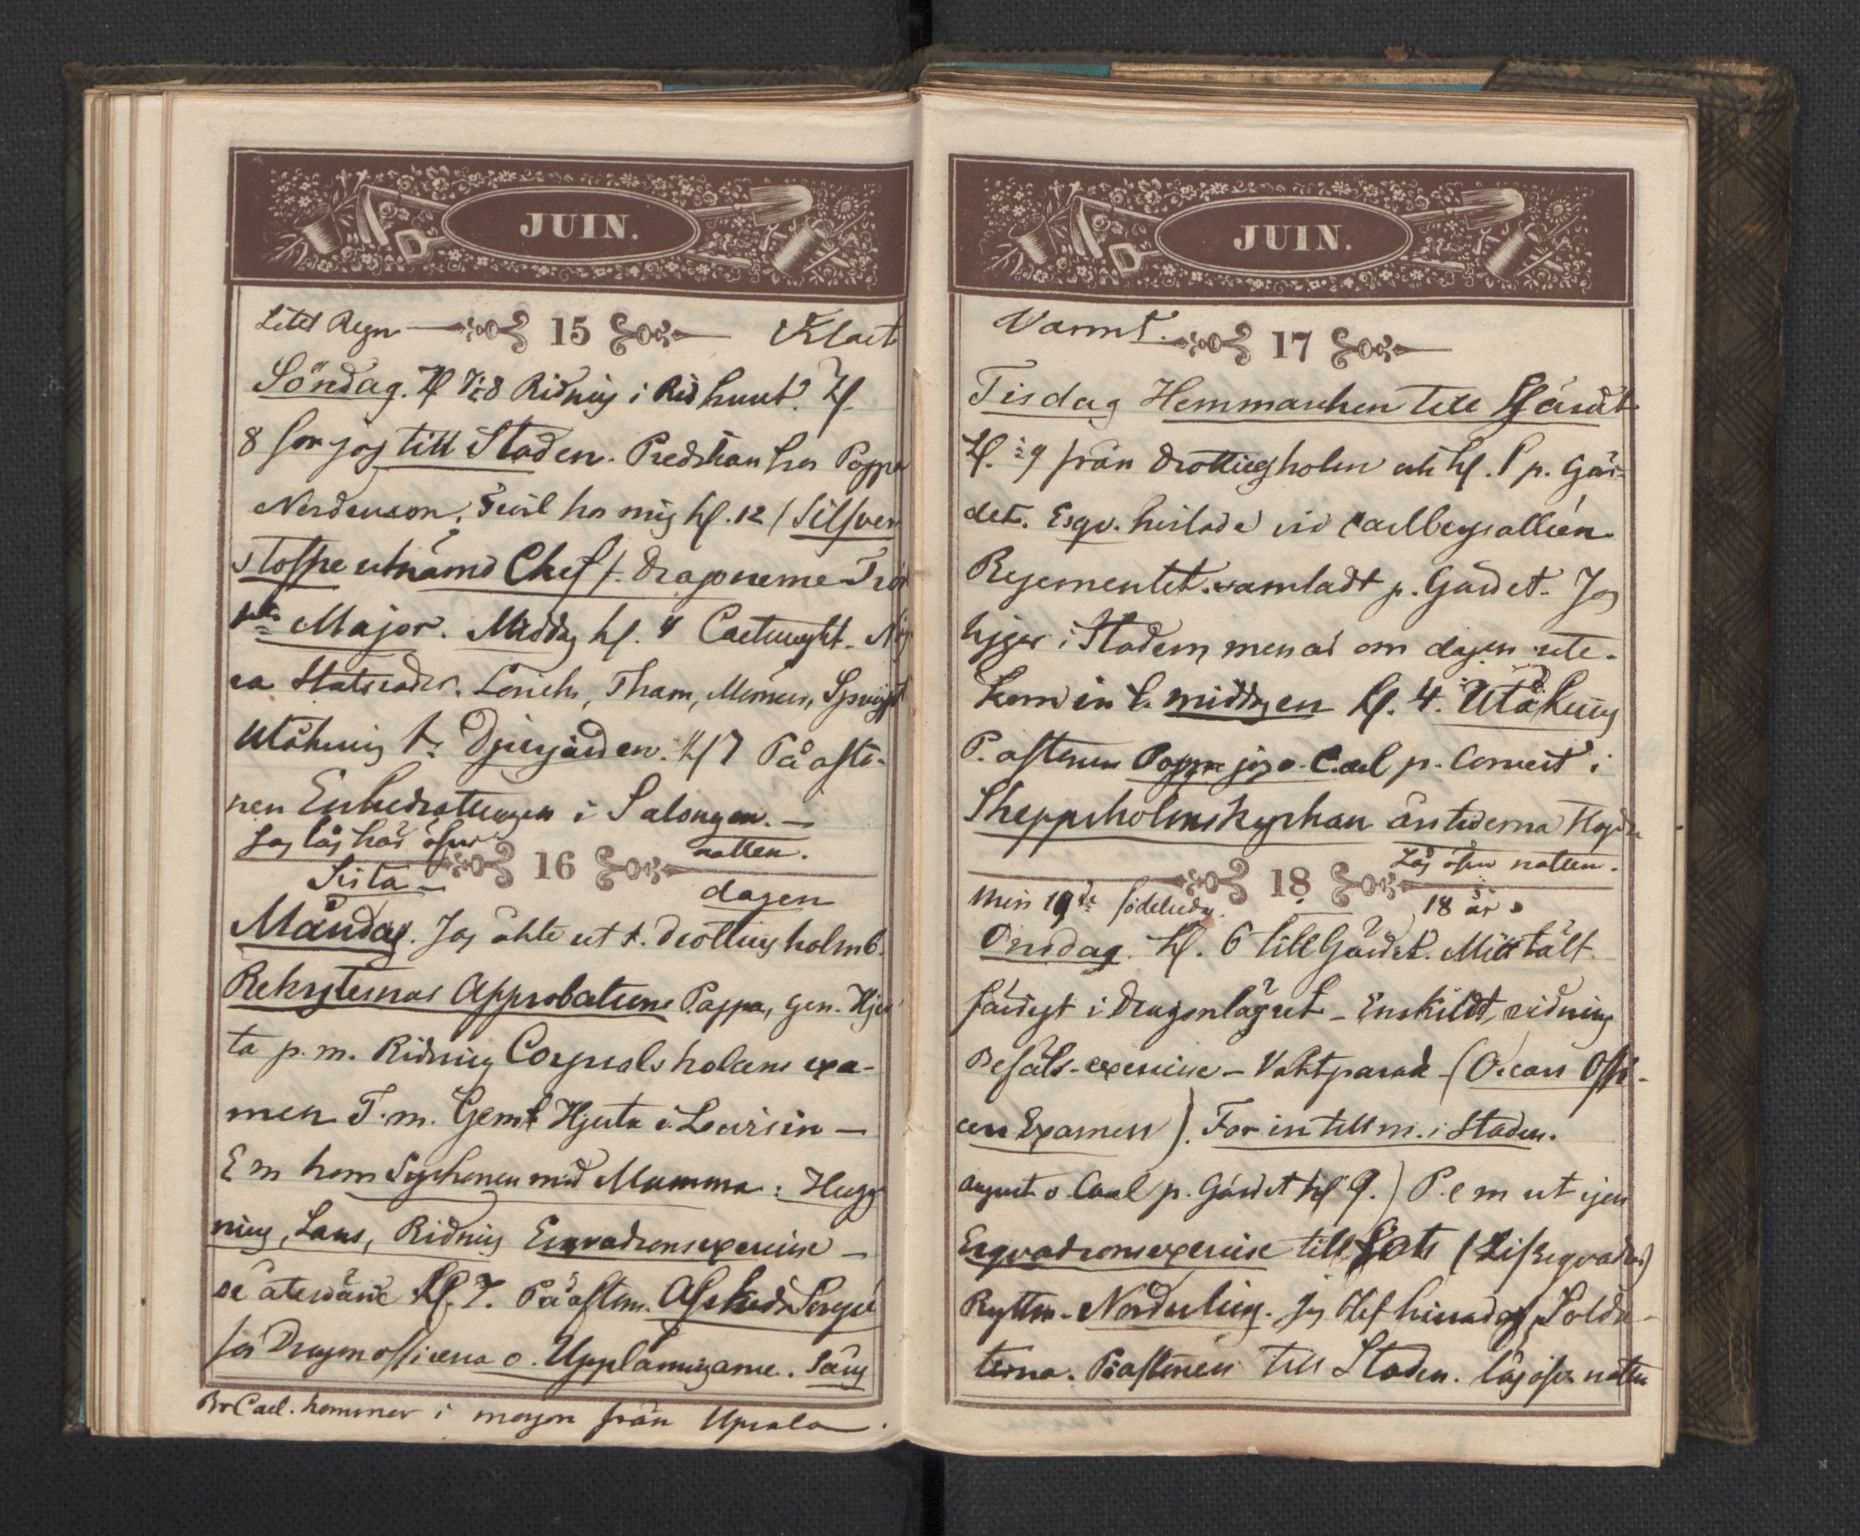 JUIN.
Litet Regn 15 Klart
Söndag. Kl ½8 Ridning i Ridhuset. Kl.
8 for jag till Staden. Predikan hos Pappa
Nordenson. hos mig kl. 12 / Silfver
stolpe utnämd Chef f. Dragonerne
1ste Major. Middag kl. 4
ra Statsråder. Lerich, Tham, Mörner,
Utåkning t. Djurgården. Kl 7 På afto-
nen i Salongen. —
Jag låg här öfver natten.
16
Sista — dagen
Måndag. Jag åkte ut t. Drottningholm 6.
Rekryternas Approbations Pappa, Gen. Hjer
ta p. m. Ridning Corpralskolans exa-
men F. m. Hjerta i
E m kom Syskonen med Mamma: Hugg
ning, Lans, Ridning Esqvadronsexercise —
de återvände Kl. 7. På afton. Afskeds
för Dragonofficerna o. Upplänningarne. Sång
Br Carl. kommer i morgon från Upsala.
JUIN.
Varmt. 17
Tisdag Hemmarchen till
Kl. ½9 från Drottningholm och kl. 1 p. Gär-
det. Esqv. hvilade vid Carlbergsalléen.
Regementet samladt p. Gärdet. Jag
ligger i Staden, men är om dagen ute.
Kom in t. middagen kl. 4. Utåkning
P. aftonen Pappa jag o. Carl p. Concert i
Skeppsholmskyrkan
Låg öfver natten.
18
Min 19de födelsedag. 18 år
Onsdag. Kl. 6 till Gärdet. Mitt tält
färdigt i Dragonlägret — Enskildt, ridning
Befäls-exercise — Vaktparad — (Oscars Offi-
cers Examen). For in till m. i Staden.
August o Carl p. Gärdet kl 9.) P. e m ut igen
Esqvadronsexercise till fots (Lifsqvadr.)
Ryttm. Nordenberg. Jag blef hurrad af Solda-
terna. På aftonen till Staden. låg öfver natten